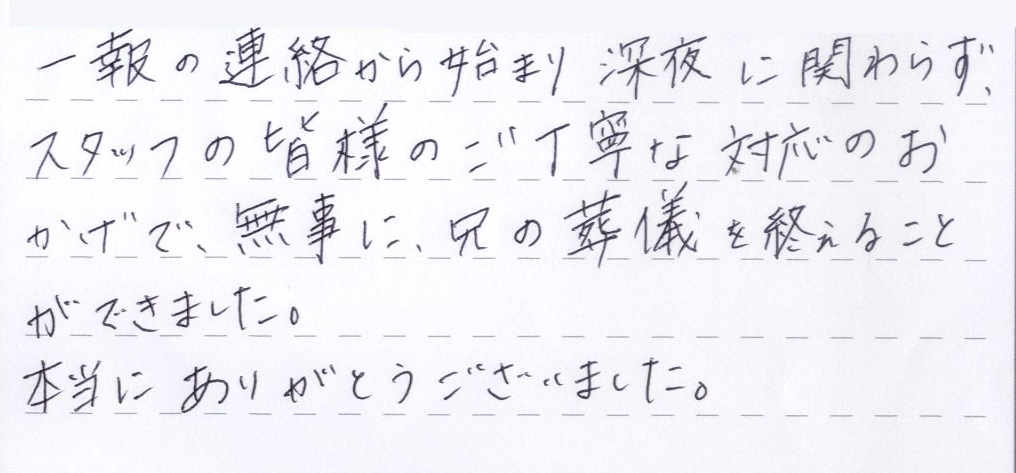 一報の連絡から始まり 深夜に関わらず、
スタッフの皆様のご丁寧な対応のお
かげで、無事に、兄の葬儀を終えること
ができました。
本当にありがとうございました。